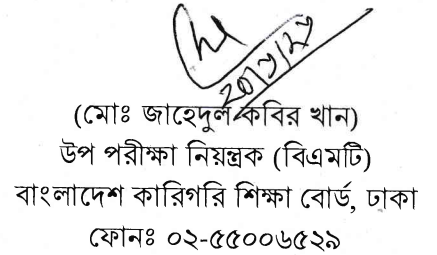 (মোঃ জাহেদুল কবির খান)
উপ পরীক্ষা নিয়ন্ত্রক (বিএমটি)
বাংলাদেশ কারিগরি শিক্ষা বোর্ড, ঢাকা
ফোনঃ ০২-৫৫০০৬৫২৯